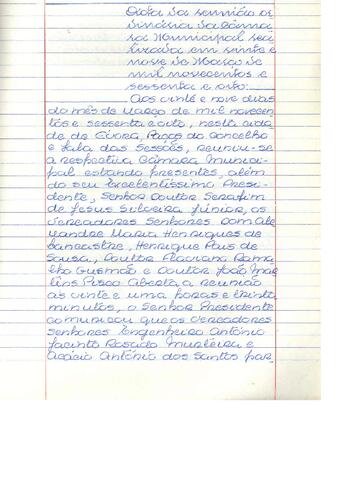 Acta da reunião or
dinária da Câma
ra Municipal rea
lizada em vinte e
nove de Março de
mil novecentos e
sessenta e oito:
Aos vinte e nove dias
do mês de Março de mil novecen
tos e sessenta e oito, nesta cida
de de Évora, Paços do Concelho
e sala das Sessões, reuniu-se
a respectiva Câmara Munici-
pal estando presentes, além
do seu Excelentíssimo Presi-
dente, Senhor Doutor Serafim
de Jesus Silveira Júnior, os
Vereadores Senhores Dom Ale
xandre Maria Henriques de
Lancastre, Henrique Pais de
Sousa, Doutor Floriano Rama
lho Gusmão e Doutor João Mar
tins Pisco. Aberta a reunião
às vinte e uma horas e trinta
minutos, o Senhor Presidente
comunicou que os Vereadores
senhores Engenheiro António
Jacinto Rosado Murteira e
Acácio António dos Santos par